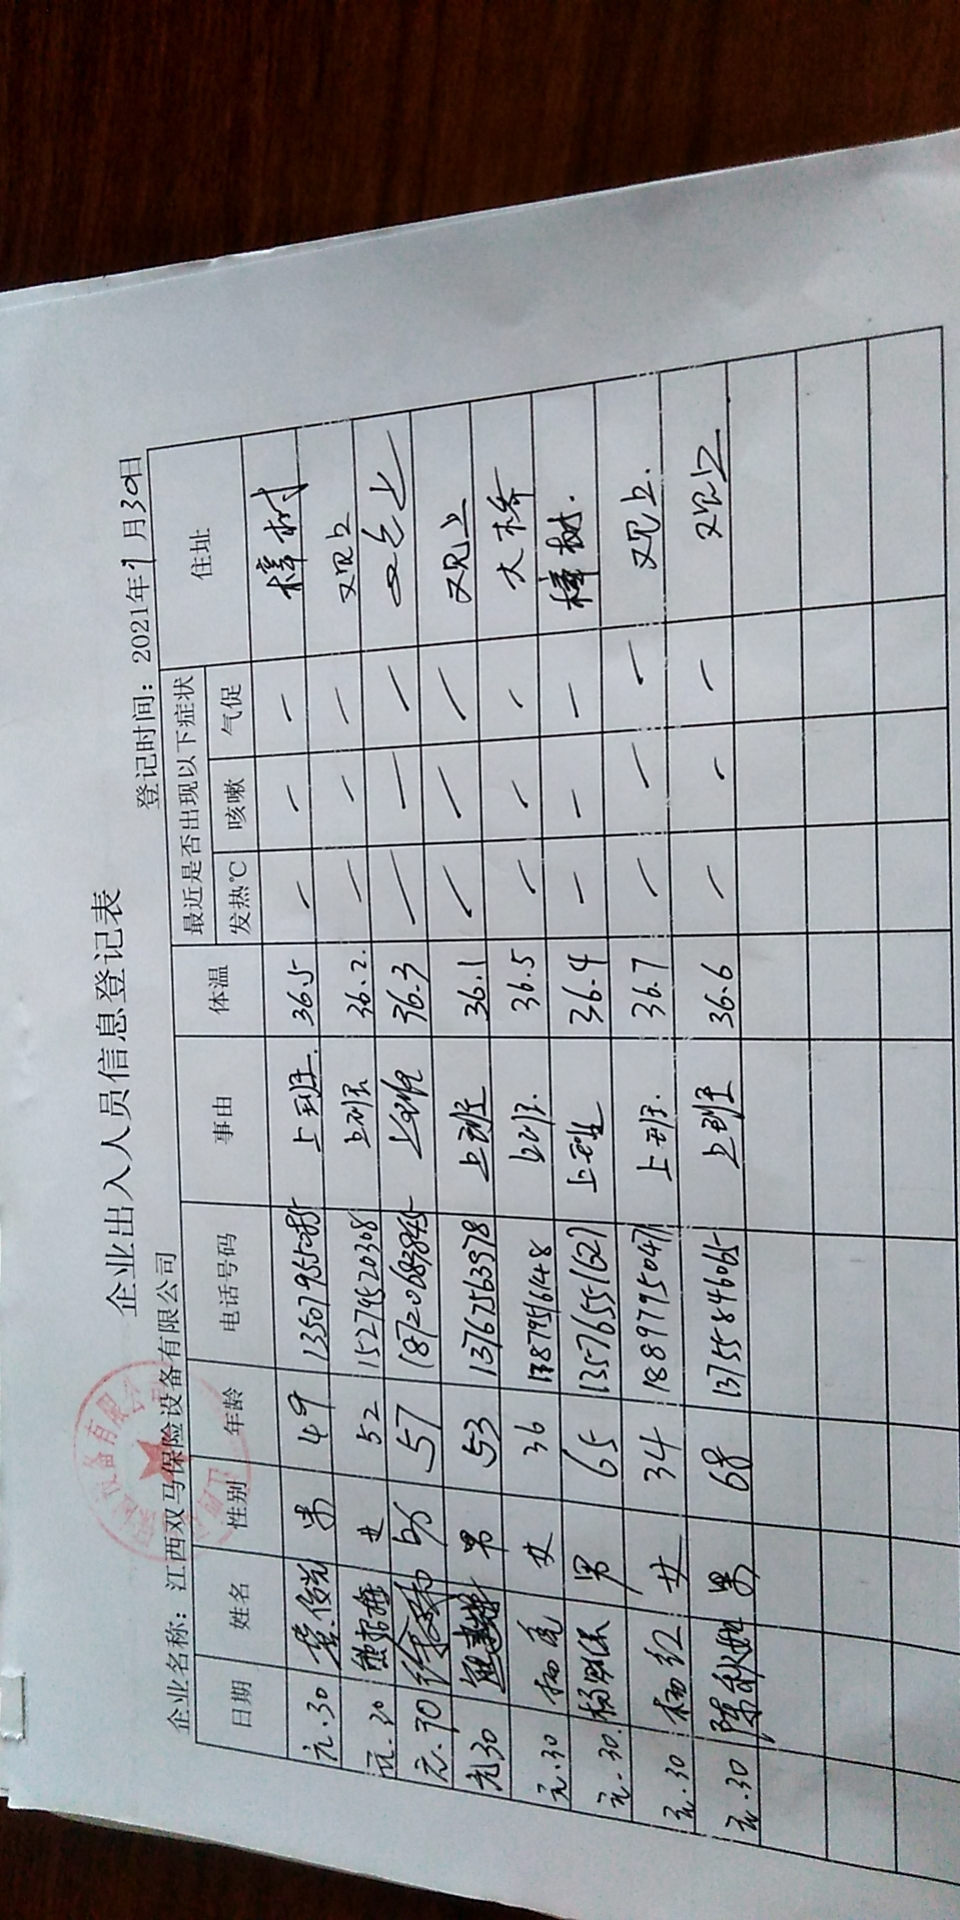 企业出入人员信息登记表
企业名称：江西双马保险设备有限公司 登记时间：2021年1月30日
日期 姓名 性别 年龄 电话号码 事由 体温 最近是否出现以下症状 住址
发热℃ 咳嗽 气促
元.30 男 49 上班. 36.5 — — — 樟树
元.30 女 52 15279520308 上班 36.2. — — — 观上
元.30 57 上班 36.3 — — —
元30 男 53 13767563978 上班 36.1 — — — 观上
元.30 女 36 13879516148 上班. 36.5 — — — 大桥
元.30. 男 65 13576551627 上班 36.4 — — — 樟树.
元.30 杨红 女 34 18897795047 上班. 36.7 — — — 观上.
元.30 男 68 13755846065 上班 36.6 — — — 观上